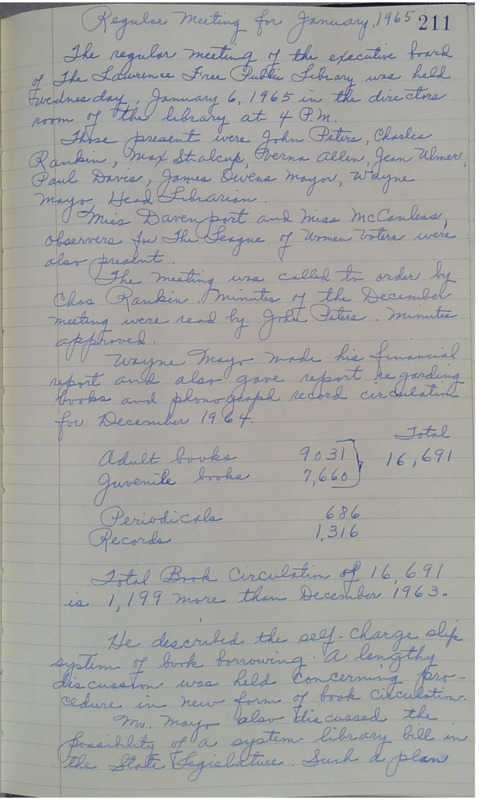 Regular Meeting for January, 1965 211
The regular meeting of the executive board
of The Lawrence Free Public Library was held
Wednesday, January 6, 1965 in the directors
room of the library at 4 P.M.
Those present were John Peters, Charles
Rankin, Max Stalcup, Verna Allen, Jean Ulmer,
Paul Davis, James Owens Mayor, Wayne
Mayo, Head Librarian.
Miss Davenport and Miss McCanless,
observers for The League of Women Voters were
also present.
The meeting was called to order by
Chas Rankin. Minutes of the December
meeting were read by John Peters. Minutes
approved.
Wayne Mayo made his financial
report and also gave report regarding
books and phonograph record circulation
for December 1964.
Total
Adult books 9031 16,691
Juvenile books 7,660
Periodicals 686
Records 1,316
Total Book Circulation of 16,691
is 1,199 more than December 1963.
He described the self-charge slip
system of book borrowing. A lengthy
discussion was held concerning pro-
cedure in new form of book circulation.
Mr. Mayo also discussed the
possibility of a system library bill in
the State Legislature. Such a plan